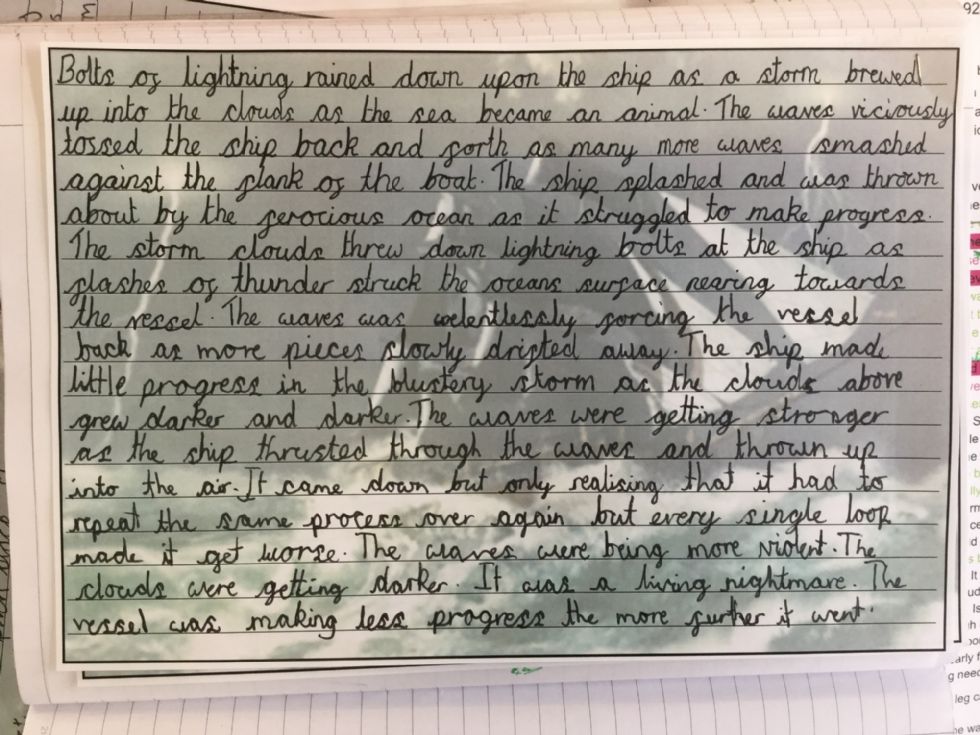 Bolts of lightning rained down upon the ship as a storm brewed
up into the clouds as the sea became an animal. The waves viciously
tossed the ship back and forth as many more waves smashed
against the plank of the boat. The ship splashed and was thrown
about by the ferocious ocean as it struggled to make progress.
The storm clouds threw down lightning bolts at the ship as
flashes of thunder struck the oceans surface nearing towards
the vessel. The waves was relentlessly forcing the vessel
back as more pieces slowly drifted away. The ship made
little progress in the blustery storm as the clouds above
grew darker and darker. The waves were getting stronger
as the ship thrusted through the waves and thrown up
into the air. It came down but only realising that it had to
repeat the same process over again but every single loop
made it get worse. The waves were being more violent. The
clouds were getting darker. It was a living nightmare. The
vessel was making less progress the more further it went.
92